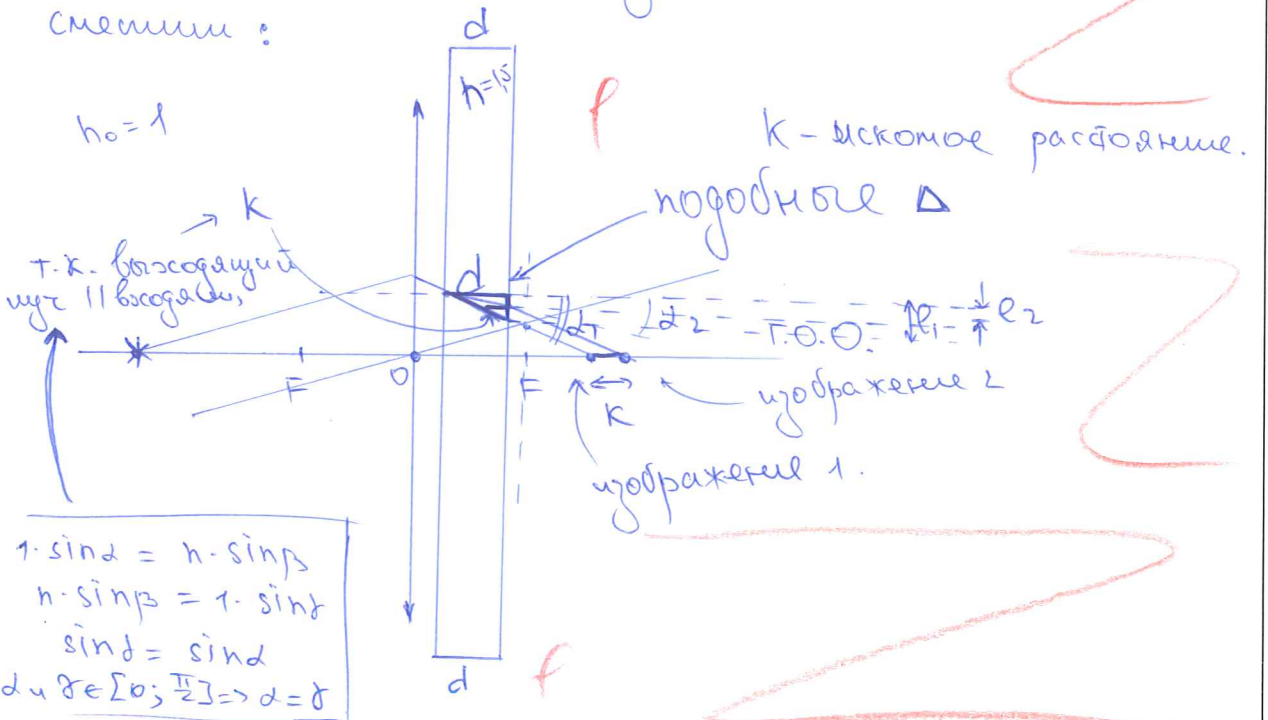 сместим :
d
n=1,5
n₀ = 1
K - искомое расстояние.
K
подобные Δ
т.к. выходящий
луч || входящ.,
d
α₁
α₂
Г.О.О.
ℓ₁
ℓ₂
F
O
F
K
изображение 2
изображение 1.
1·sinα = n·sinβ
n·sinβ = 1·sinγ
sinγ = sinα
α и γ ∈ [0; π/2] => α = γ
d